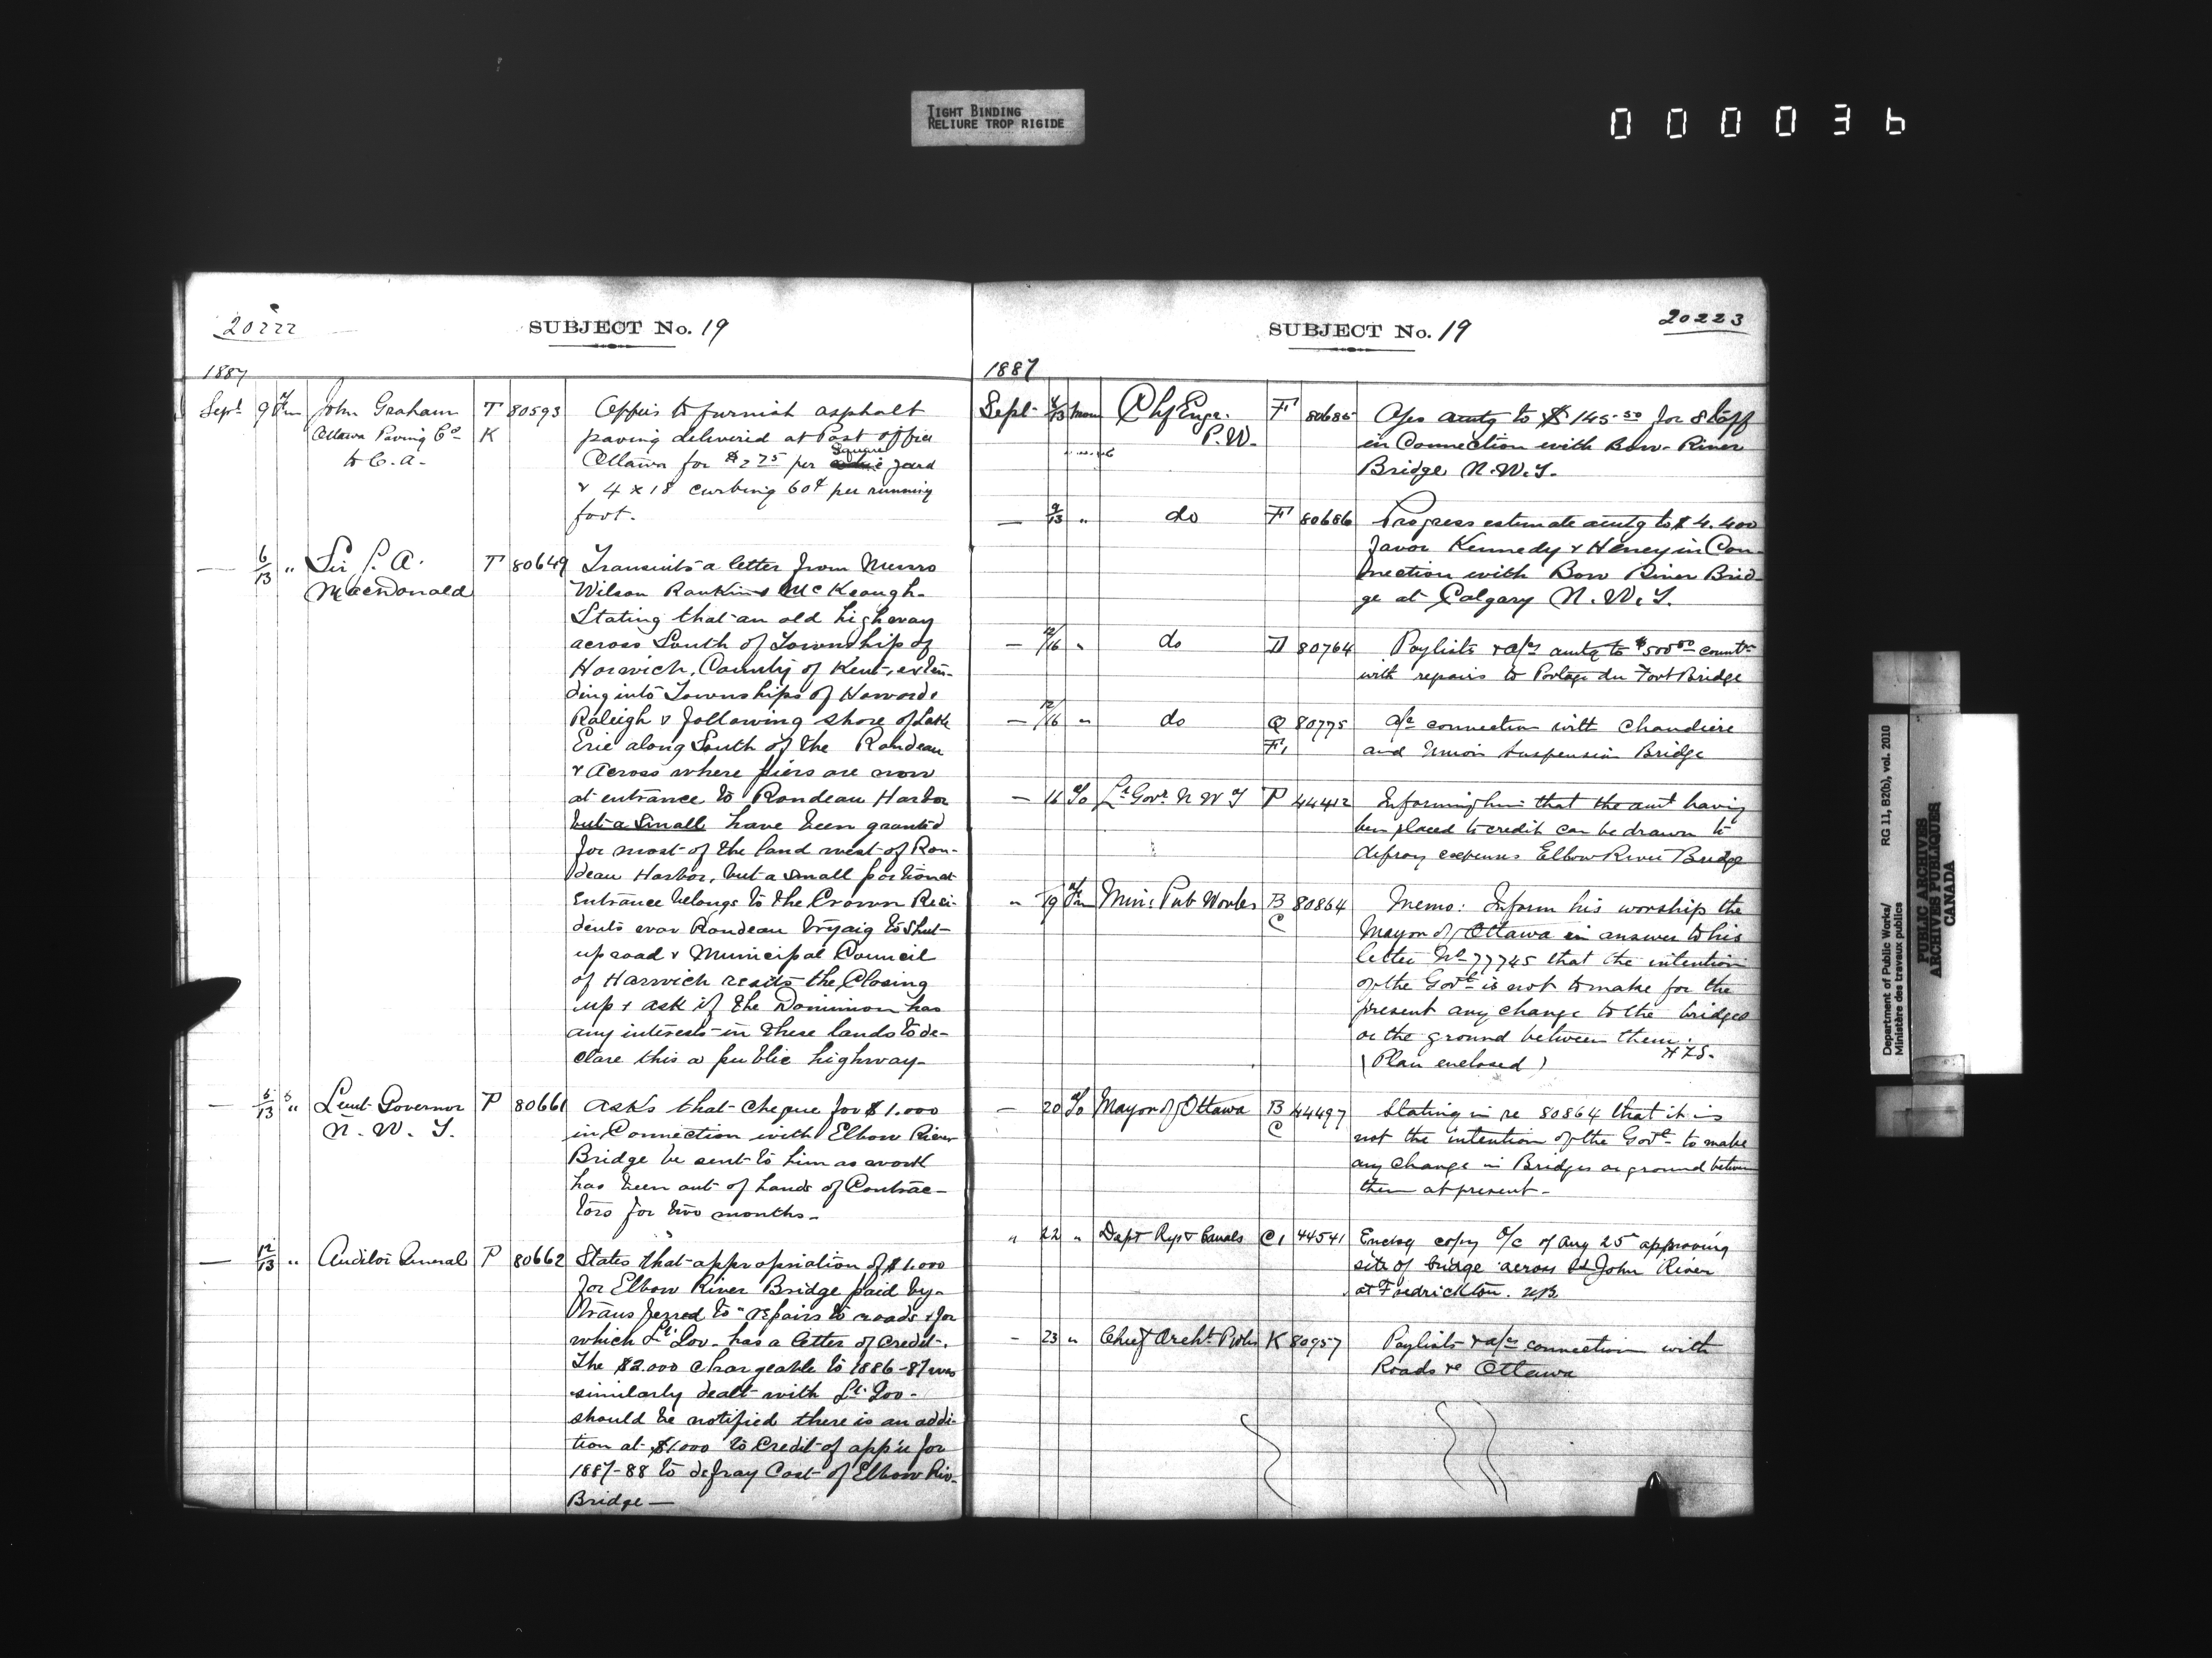 TIGHT BINDING
RELIURE TROP RIGIDE
000036
20222
SUBJECT No. 19
1887
Sept 9 Fm John Graham T 80593 Offers to furnish asphalt
Ottawa Paving Co K paving delivered at Post Office
to C.A. Ottawa for $2 75 per Square yard
& 4 x 18 curbing 60¢ per running
foot.
— 6/13 " Sir J. A. T 80649 Transmits a letter from Messrs
MacDonald Wilson Rankin & McKeough
Stating that an old highway
across South of Township of
Harwich, County of Kent, exten-
ding into Townships of Howard &
Raleigh & following shore of Lake
Erie along South of the Rondeau
& Across where piers are now
at entrance to Rondeau Harbor
but a small have been granted
for most of the land west of Ron-
deau Harbor, but a small portion at
Entrance belongs to the Crown Resi-
dents Rondeau trying to Shut
up road & Municipal Council
of Harwich resists the Closing
up & ask if the Dominion has
any interests in these lands to de-
clare this a public highway
— 5/13 " Lieut Governor P 80661 Asks that cheque for $1.000
N. W. T. in Connection with Elbow River
Bridge be sent to him as work
has been out of hands of Contrac-
tors for two months -
— 12/13 " Auditor General P 80662 States that appropriation of $1.000
for Elbow River Bridge paid by
transferred to "repairs to roads & for
which Lt. Gov. has a letter of Credit.
The $2.000 chargeable to 1886-87 was
similarly dealt with Lt. Gov.
should be notified there is an addi-
tion al $1.000 to Credit of app'n for
1887-88 to defray Cost of Elbow Riv.
Bridge —
20223
SUBJECT No. 19
1887
Sept 8/13 from Chf Engr. F 80685 A/cs amtg to $145.50 for Staff
P.W. in Connection with Bow River
Bridge N.W.T.
— 9/13 " do F 80686 Progress estimate amtg to $4.400
favor Kennedy & Heney in Con-
nection with Bow River Brid-
ge at Calgary N.W.T.
— 12/16 " do D 80764 Paylists & a/cs amtg to $500 00
with repairs to Portage du Fort Bridge
— 12/16 " do Q 80775 a/c connection with Chaudiere
F, and Union Suspension Bridge
— 16 To Lt. Govr. N W T P 44412 Informing him that the amt having
been placed to credit can be drawn to
defray expenses Elbow River Bridge
" 19 Fm Minr Pub Works B 80864 Memo: Inform his worship the
C Mayor of Ottawa in answer to his
letter No 77745 that the intention
of the Govt is not to make for the
present any change to the bridges
or the ground between them.
(Plan enclosed)
— 20 To Mayor of Ottawa B 44497 Stating in re 80864 that it is
C not the intention of the Govt to make
any change in Bridges or ground between
them at present -
" 22 " Dept Rys & Canals C1 44541 Enclog copy O/C of Aug 25 approving
site of bridge across St John River
at Fredrickton. NB
- 23 " Chief Archt P Wks K 80957 Paylists & a/cs connection with
Roads &c Ottawa
Department of Public Works/ RG 11, B2(b), vol. 2010
Ministère des travaux publics
PUBLIC ARCHIVES
ARCHIVES PUBLIQUES
CANADA